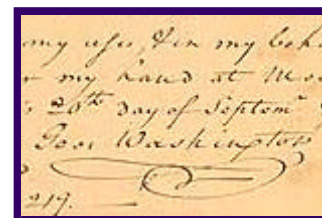 my use, & in my beh
my hand at Mo
20th day of Septemr
Geo: Washington
217.